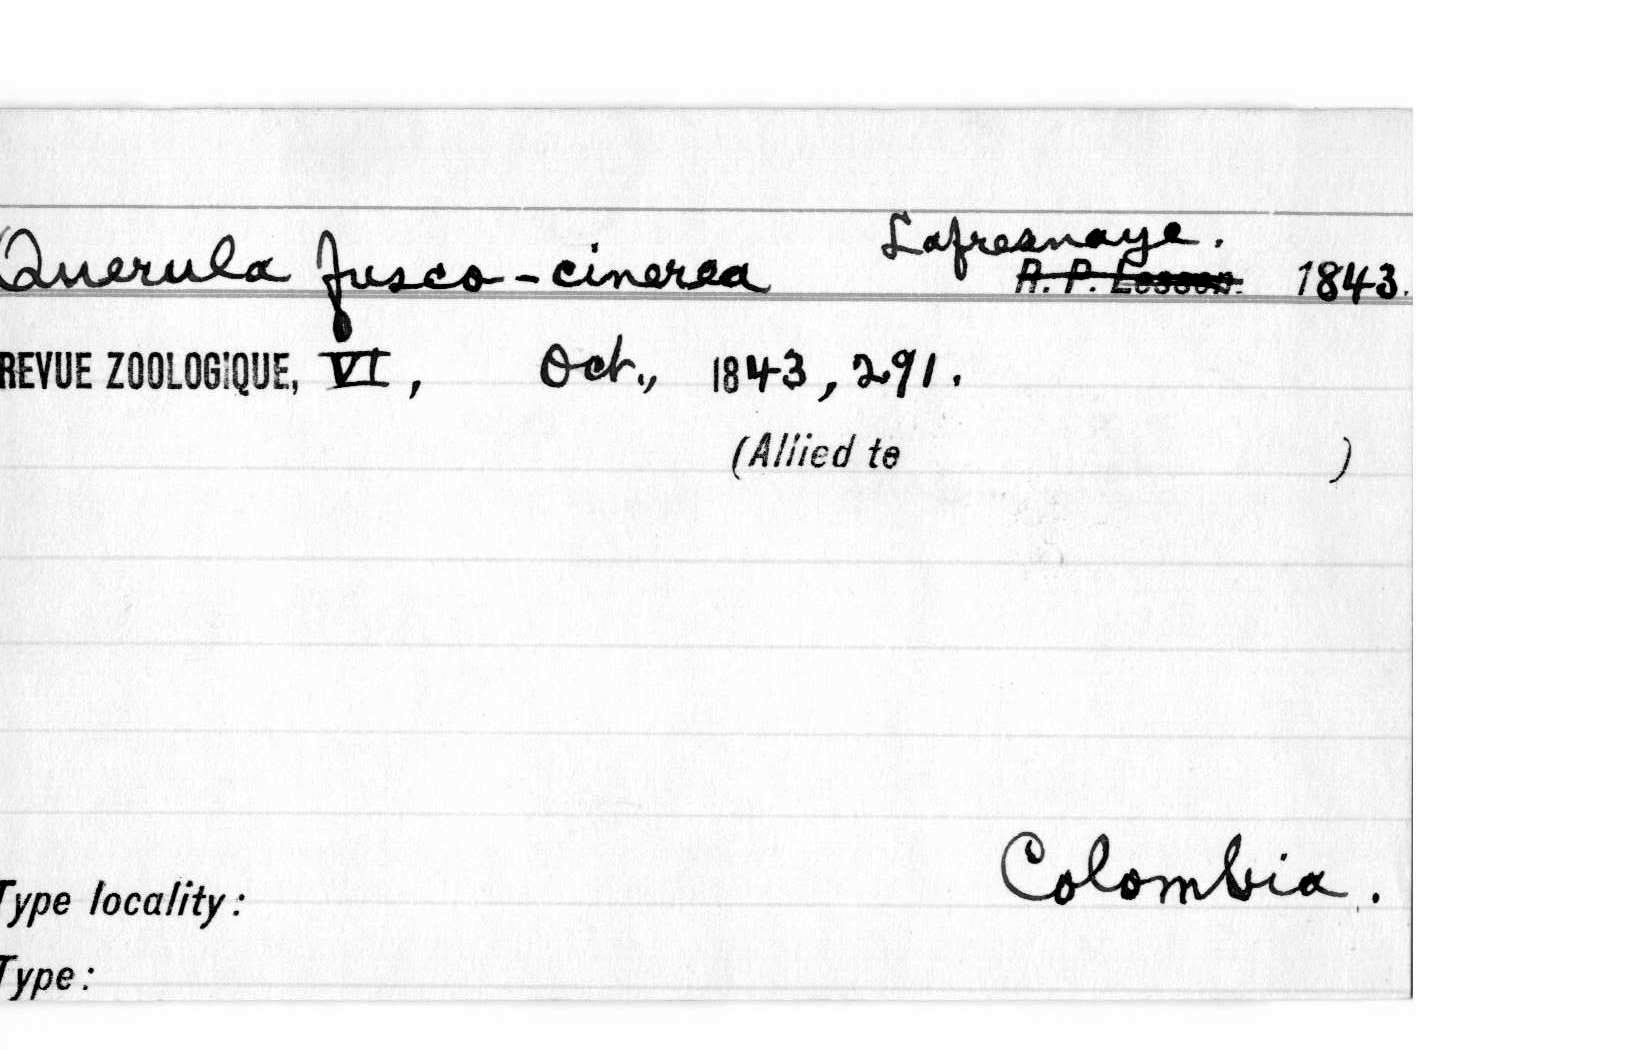 Querula fusco-cinerea Lafresnaye.
R. P. Lesson. 1843.
REVUE ZOOLOGIQUE, VI, Oct., 1843, 291.
(Allied to )
Colombia.
Type locality:
Type: